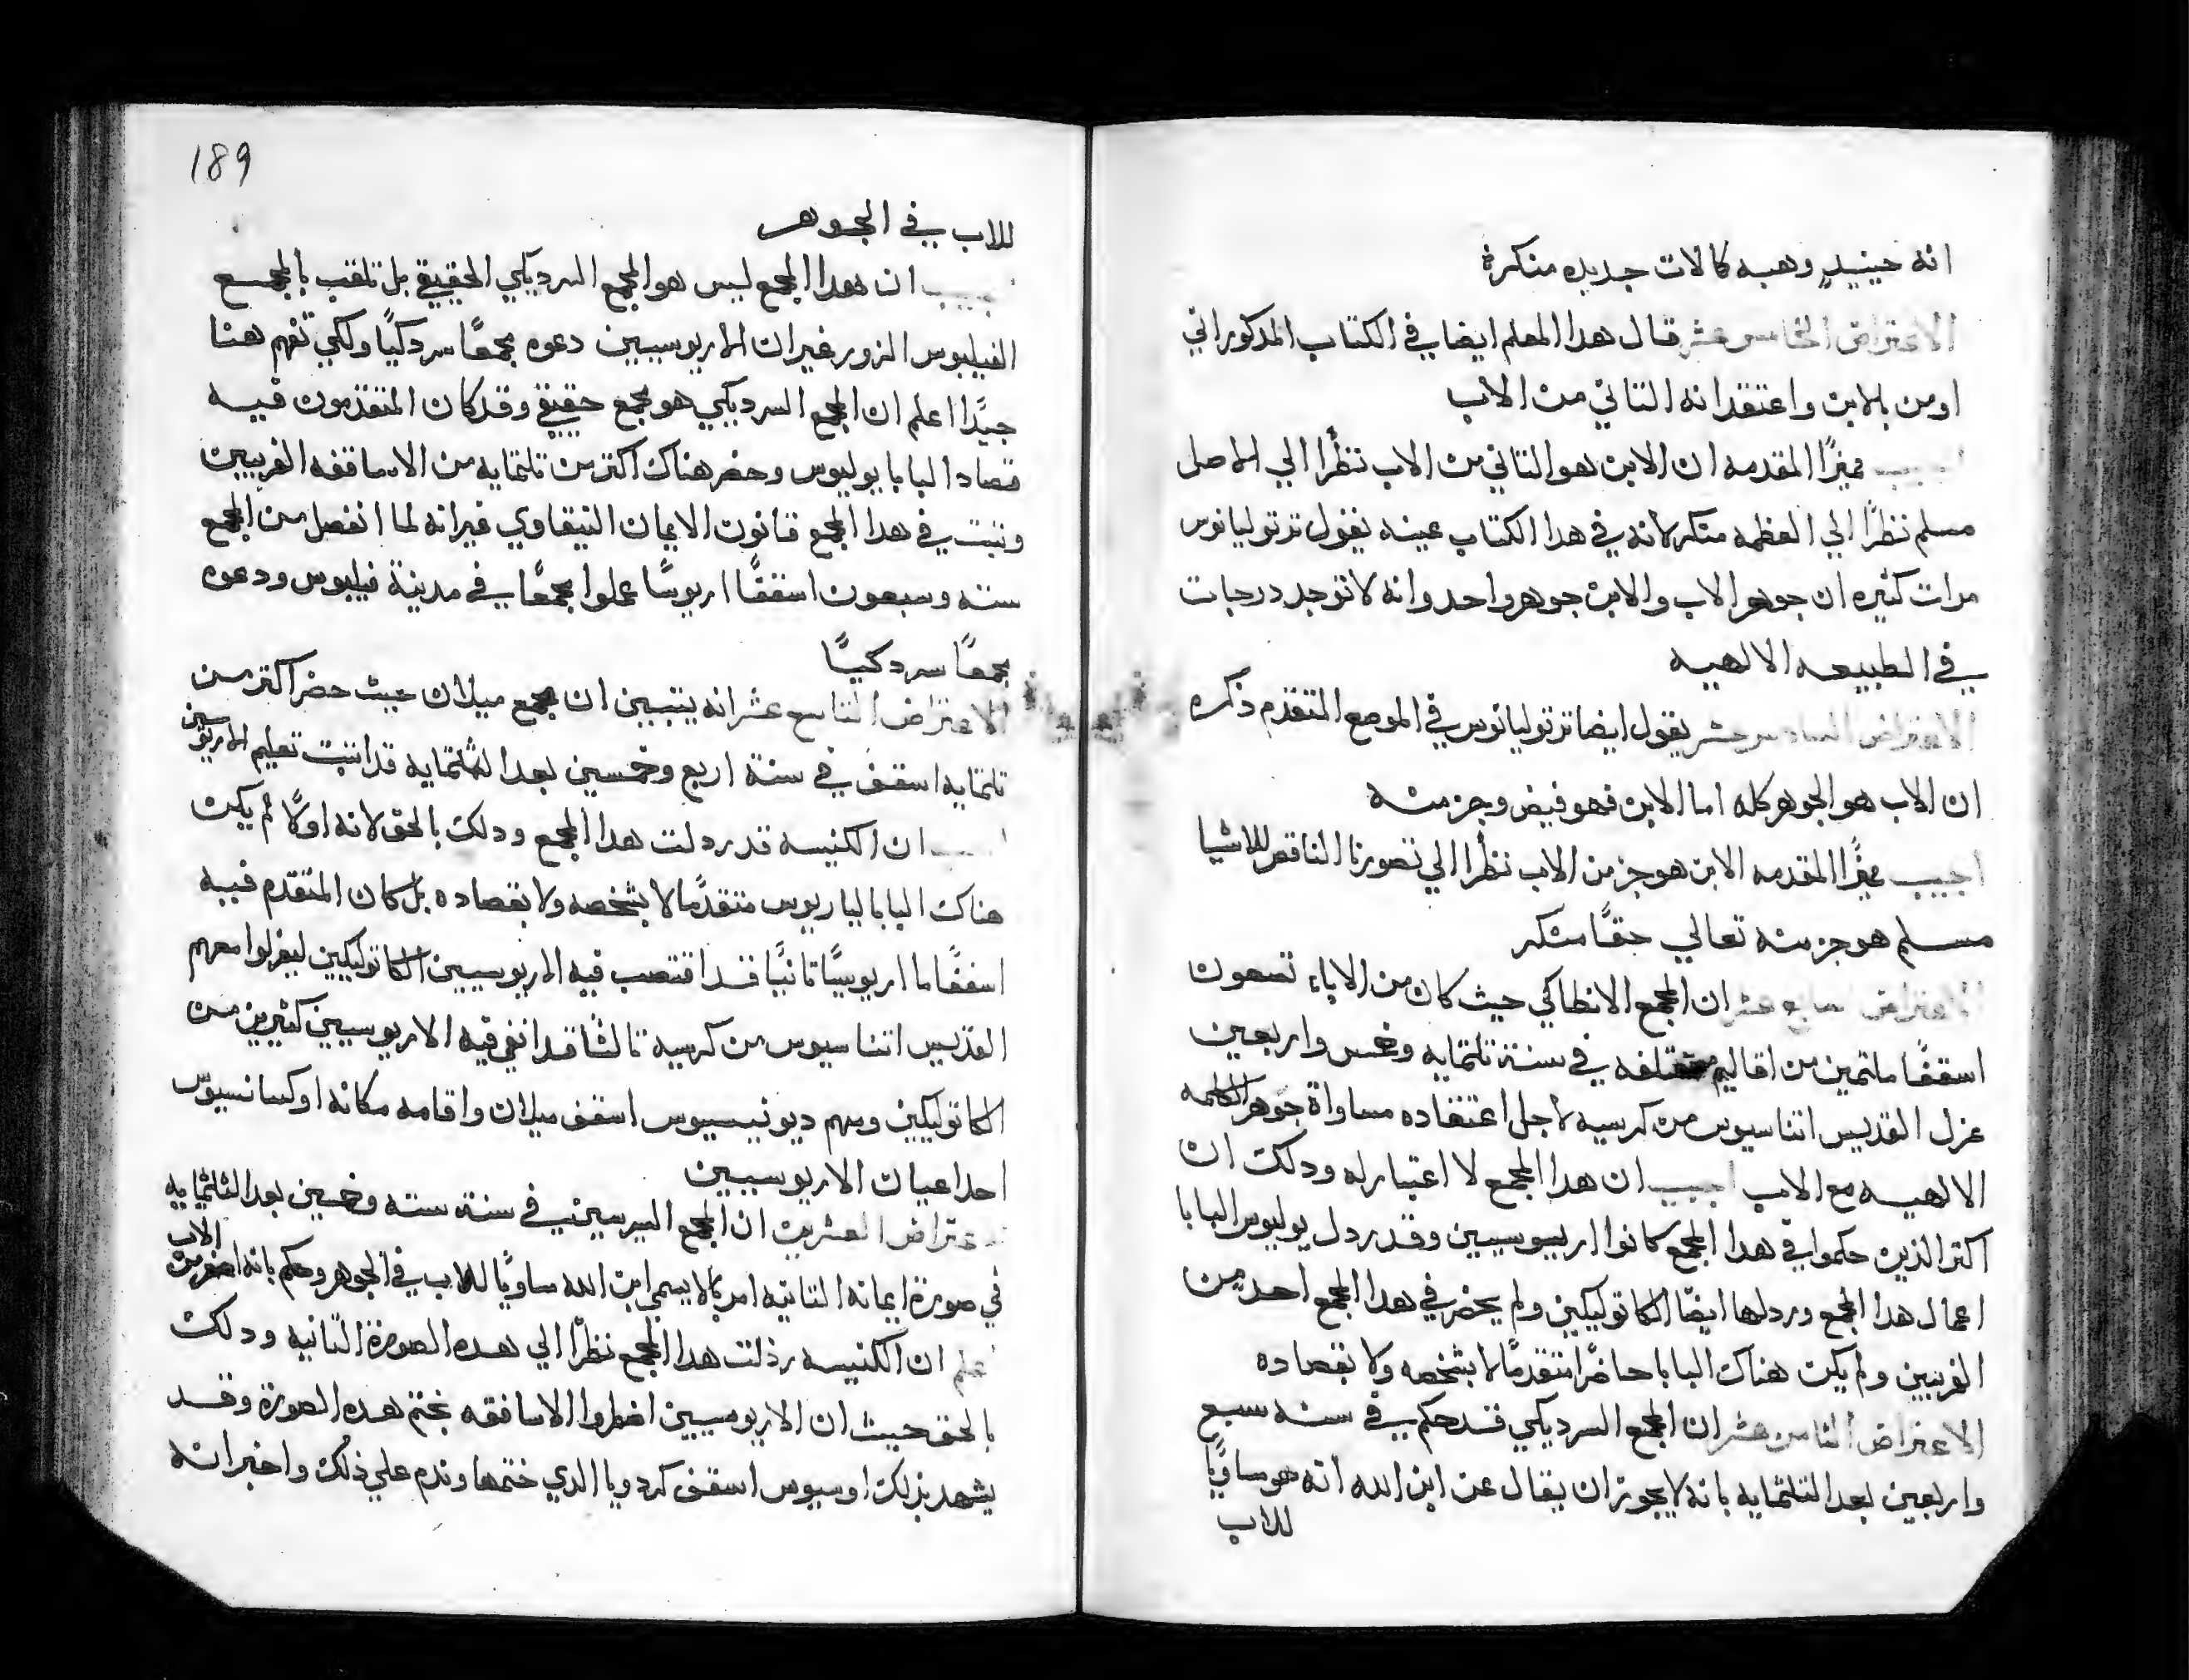 انه حينيدٍ وهبه كالات جديده منكرة
الاعتراض الخامس عشر قال هدا المعلم ايضا في الكتاب المدكور اني
اومن بالابن واعتقد انه التاني من الاب
اجيب مميزًا المقدمه ان الابن هو التاني من الاب نظرًا الي الاصل
مسلم نظرًا الي العظمه منكر لانه في هدا الكتاب عينه يقول ترتوليانوس
مرات كثيره ان جوهر الاب والابن جوهر واحد وانه لا توجد درجات
في الطبيعه الالهيه
الاعتراض السادس عشر يقول ايضا ترتوليانوس في الموضع المتقدم ذكره
ان الاب هو الجوهر كله اما الابن فهو فيض وجز منه
اجيب مميزًا المقدمه الابن هو جز من الاب نظرًا الي تصورنا الناقص للاشيا
مسلم هو جز منه تعالي حقًا منكر
الاعتراض السابع عشر ان المجمع الانطاكي حيث كان من الاباء تسعون
اسقفًا ملتمين من اقاليم مختلفه في سنة تلتمايه وخمس واربعين
عزل القديس اتناسيوس من كرسيه لاجل اعتقاده مساواة جوهر الكلمه
الالهيه مع الاب اجيب ان هدا المجمع لا اعتبار له ودلك ان
اكتر الذين حكموا في هدا المجمع كانوا اريوسيين وقد ردل يوليوس البابا
اعمال هدا المجمع وردلها ايضًا الكاتوليكين ولم يحضر في هدا المجمع احد من
الغربيين ولم يكن هناك البابا حاضرًا متقدمًا لا بشخصه ولا بقصاده
الاعتراض الثامن عشر ان المجمع السرديكي قد حكم في سنه سبع
واربعين بعد التلتمايه بانه لا يجوز ان يقال عن ابن الله انه مساويًا
للاب
189
للاب في الجوهر
اجيب ان هدا المجمع ليس هو المجمع السرديكي الحقيقي بل تلقب بالمجمع
الفيلبوس المزور غير ان الاريوسيين دعوه مجمعًا سردكيًا ولكي تفهم هنا
جيدًا اعلم ان المجمع السرديكي هو مجمع حقيقي وقد كان المتقدمون فيه
قصاد البابا يوليوس وحضر هناك اكتر من تلتمايه من الاساقفه الغربيين
وتبت في هدا المجمع قانون الايمان النيقاوي غير انه لما انفصل من المجمع
سته وسبعون اسقفًا اريوسًا عملوا مجمعًا في مدينة فيلبوس ودعوه
مجمعًا سردكيًا
الاعتراض التاسع عشر انه يتبين ان مجمع ميلان حيث حضر اكتر من
تلتمايه اسقف في سنة اربع وخمسين بعد التلتمايه قد اتبت تعليم الاريوسين
اجيب ان الكنيسه قد ردلت هدا المجمع ودلك بالحق لانه اولًا لم يكن
هناك البابا لياريوس متقدمًا لا بشخصه ولا بقصاده بل كان المتقدم فيه
اسقفًا ما اريوسيًا تانيًا قد اغتصب فيه الاريوسيين الكاتوليكين ليعزلوا معهم
القديس اتناسيوس من كرسيه تالثًا قد انفي فيه الاريوسيين كثيرين من
الكاتوليكين ومنهم ديونيسيوس اسقف ميلان واقامه مكانه اوكسانسيوس
احد اعيان الاريوسيين
الاعتراض العشرين ان المجمع السرميني في سنة سته وخمسين بعد التلثمايه
في صورة ايمانه التانيه امر بالا يسمي ابن الله ساويًا للاب في الجوهر وحكم بانه اصغر من الاب
اعلم ان الكنيسه رذلت هدا المجمع نظرًا الي هده الصورة التانيه ودلك
بالحق حيث ان الاريوسيين اضطروا الاساقفه بختم هده الصورة وقد
يشهد بذلك اوسيوس اسقف كردويا الدي ختمها وندم علي ذلك واخبر انه